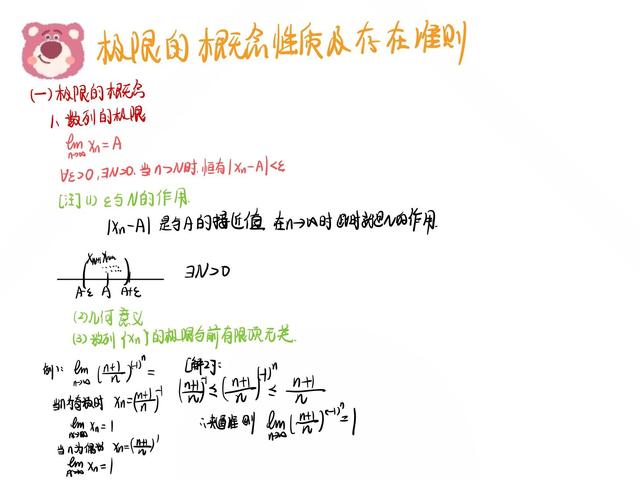 极限的概念性质及存在准则
(一)极限的概念
1、数列的极限
lim n→∞ xn=A
∀ε>0,∃N>0,当n>N时,恒有|xn-A|<ε
[注](1) ε与N的作用.
|xn-A| 是与A的接近值,在n→∞时
N的作用.
xN+1 xN+2
A-ε A A+ε
∃N>0
(2)几何意义
(3)数列{xn}的极限与前有限项无关.
例1: lim n→∞ (n+1/n)^(-1)^n =
当n为奇数时 xn=(n+1/n)^-1
lim n→∞ xn=1
当n为偶数 xn=(n+1/n)^1
lim n→∞ xn=1
[解2]:
(n+1/n)^-1 ≤ (n+1/n)^(-1)^n ≤ n+1/n
准则 lim n→∞ (n+1/n)^(-1)^n = 1